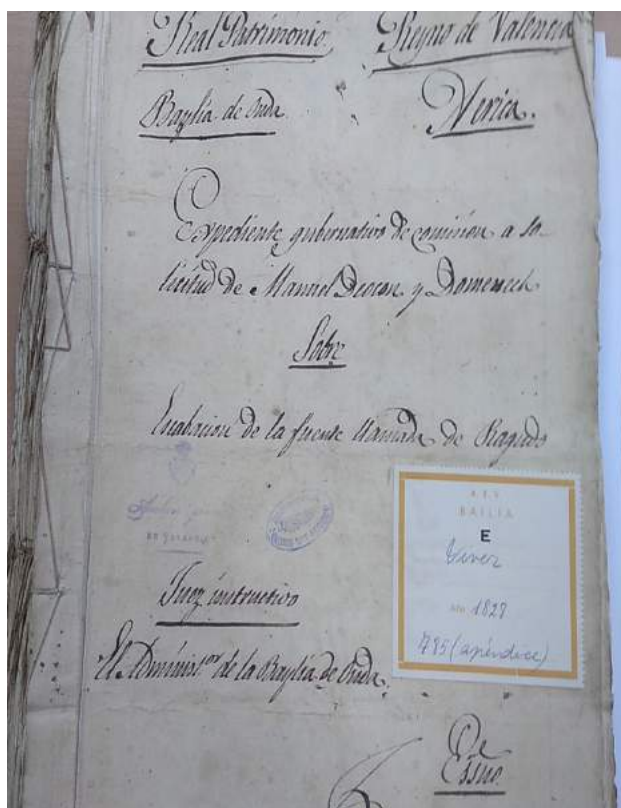 Real Patrimonio. Reyno de Valencia
Baylia de Onda. Xerica.
Expediente gubernativo de comision a so-
licitud de Manuel Deocon y Domenech
Sobre
de la fuente llamada de Ragudo
BAILIA
E
Viver
Año 1827
795 (apéndice)
Juez instructivo
El Administ.or de la Baylia de Onda.
De
Essno.